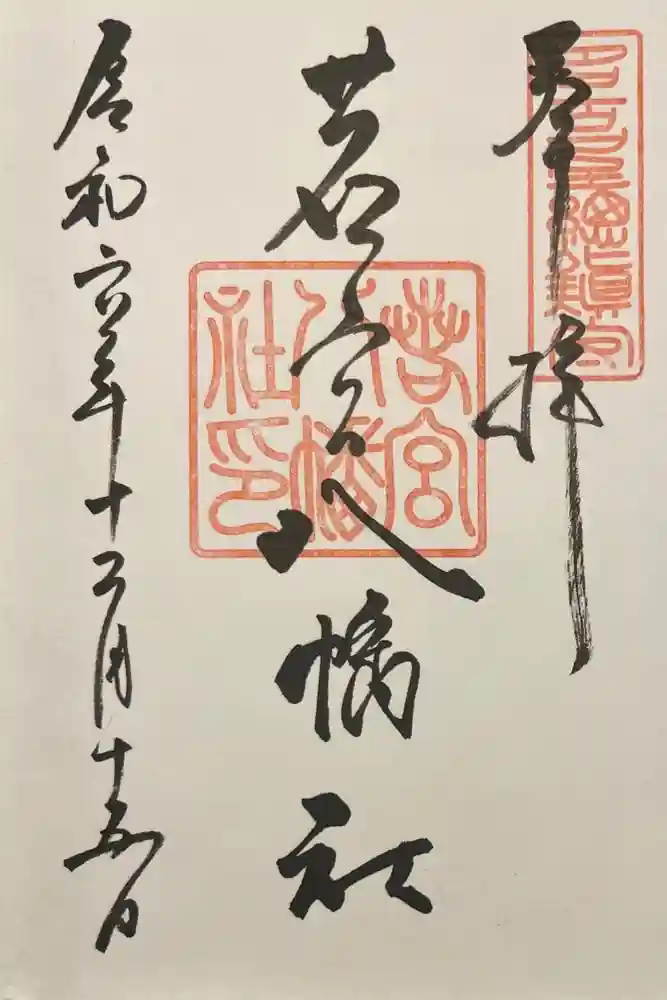 名古屋總鎮守
奉拝
若宮八幡社
若宮
八幡
社印
令和六年十二月十五日